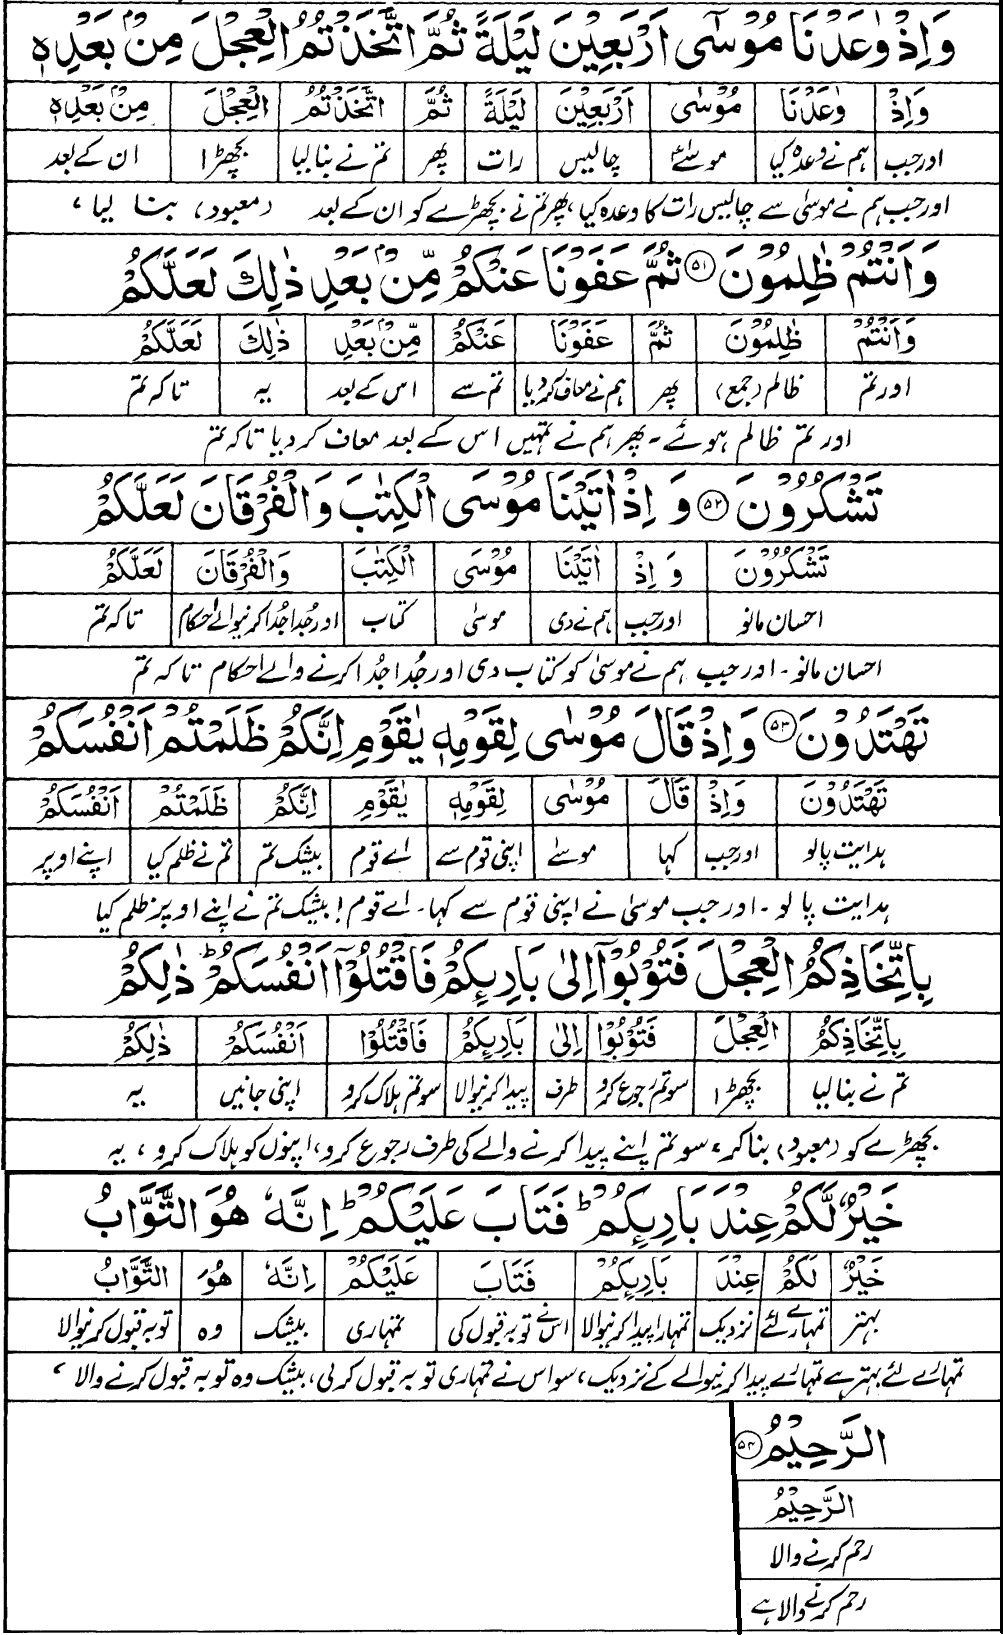 وَاِذْ وٰعَدْنَا مُوْسٰٓى اَرْبَعِيْنَ لَيْلَةً ثُمَّ اتَّخَذْتُمُ الْعِجْلَ مِنْۢ بَعْدِهٖ
وَاِذْ وٰعَدْنَا مُوْسٰٓى اَرْبَعِيْنَ لَيْلَةً ثُمَّ اتَّخَذْتُمُ الْعِجْلَ مِنْۢ بَعْدِهٖ
اور جب ہم نے وعدہ کیا موسیٰؑ چالیس رات پھر تم نے بنا لیا بچھڑا ان کے بعد
اور جب ہم نے موسیٰ سے چالیس رات کا وعدہ کیا، پھر تم نے بچھڑے کو ان کے بعد (معبود) بنا لیا،
وَاَنْتُمْ ظٰلِمُوْنَ ۵۱ ثُمَّ عَفَوْنَا عَنْكُمْ مِّنْۢ بَعْدِ ذٰلِكَ لَعَلَّكُمْ
وَاَنْتُمْ ظٰلِمُوْنَ ثُمَّ عَفَوْنَا عَنْكُمْ مِّنْۢ بَعْدِ ذٰلِكَ لَعَلَّكُمْ
اور تم ظالم (جمع) پھر ہم نے معاف کر دیا تم سے اس کے بعد یہ تاکہ تم
اور تم ظالم ہوئے ۔ پھر ہم نے تمہیں اس کے بعد معاف کر دیا تاکہ تم
تَشْكُرُوْنَ ۵۲ وَ اِذْ اٰتَيْنَا مُوْسَى الْكِتٰبَ وَالْفُرْقَانَ لَعَلَّكُمْ
تَشْكُرُوْنَ وَ اِذْ اٰتَيْنَا مُوْسَى الْكِتٰبَ وَالْفُرْقَانَ لَعَلَّكُمْ
احسان مانو اور جب ہم نے دی موسیٰ کتاب اور جُدا جُدا کرنیوالے احکام تاکہ تم
احسان مانو ۔ اور جب ہم نے موسیٰ کو کتاب دی اور جُدا جُدا کرنے والے احکام تاکہ تم
تَهْتَدُوْنَ ۵۳ وَاِذْ قَالَ مُوْسٰى لِقَوْمِهٖ يٰقَوْمِ اِنَّكُمْ ظَلَمْتُمْ اَنْفُسَكُمْ
تَهْتَدُوْنَ وَاِذْ قَالَ مُوْسٰى لِقَوْمِهٖ يٰقَوْمِ اِنَّكُمْ ظَلَمْتُمْ اَنْفُسَكُمْ
ہدایت پالو اور جب کہا موسےٰ اپنی قوم سے اے قوم بیشک تم تم نے ظلم کیا اپنے اوپر
ہدایت پا لو ۔ اور جب موسیٰ نے اپنی قوم سے کہا۔ اے قوم! بیشک تم نے اپنے اوپر ظلم کیا
بِاتِّخَاذِكُمُ الْعِجْلَ فَتُوْبُوْٓا اِلٰى بَارِئِكُمْ فَاقْتُلُوْٓا اَنْفُسَكُمْ ؕ ذٰلِكُمْ
بِاتِّخَاذِكُمُ الْعِجْلَ فَتُوْبُوْا اِلٰى بَارِئِكُمْ فَاقْتُلُوْا اَنْفُسَكُمْ ذٰلِكُمْ
تم نے بنا لیا بچھڑا سو تم رجوع کرو طرف پیدا کرنیوالا سو تم ہلاک کرو اپنی جانیں یہ
بچھڑے کو (معبود) بنا کر، سو تم اپنے پیدا کرنے والے کی طرف رجوع کرو، اپنوں کو ہلاک کرو، یہ
خَيْرٌ لَّكُمْ عِنْدَ بَارِئِكُمْ ؕ فَتَابَ عَلَيْكُمْ ؕ اِنَّهٗ هُوَ التَّوَّابُ
خَيْرٌ لَكُمْ عِنْدَ بَارِئِكُمْ فَتَابَ عَلَيْكُمْ اِنَّهٗ هُوَ التَّوَّابُ
بہتر تمہارے لئے نزدیک تمہارا پیدا کرنیوالا اس نے توبہ قبول کی تمہاری بیشک وہ توبہ قبول کرنیوالا
تمہارے لئے بہتر ہے تمہارے پیدا کرنیوالے کے نزدیک، سو اس نے تمہاری توبہ قبول کر لی، بیشک وہ توبہ قبول کرنے والا،
الرَّحِيْمُ ۵۴
الرَّحِيْمُ
رحم کرنے والا
رحم کرنے والا ہے